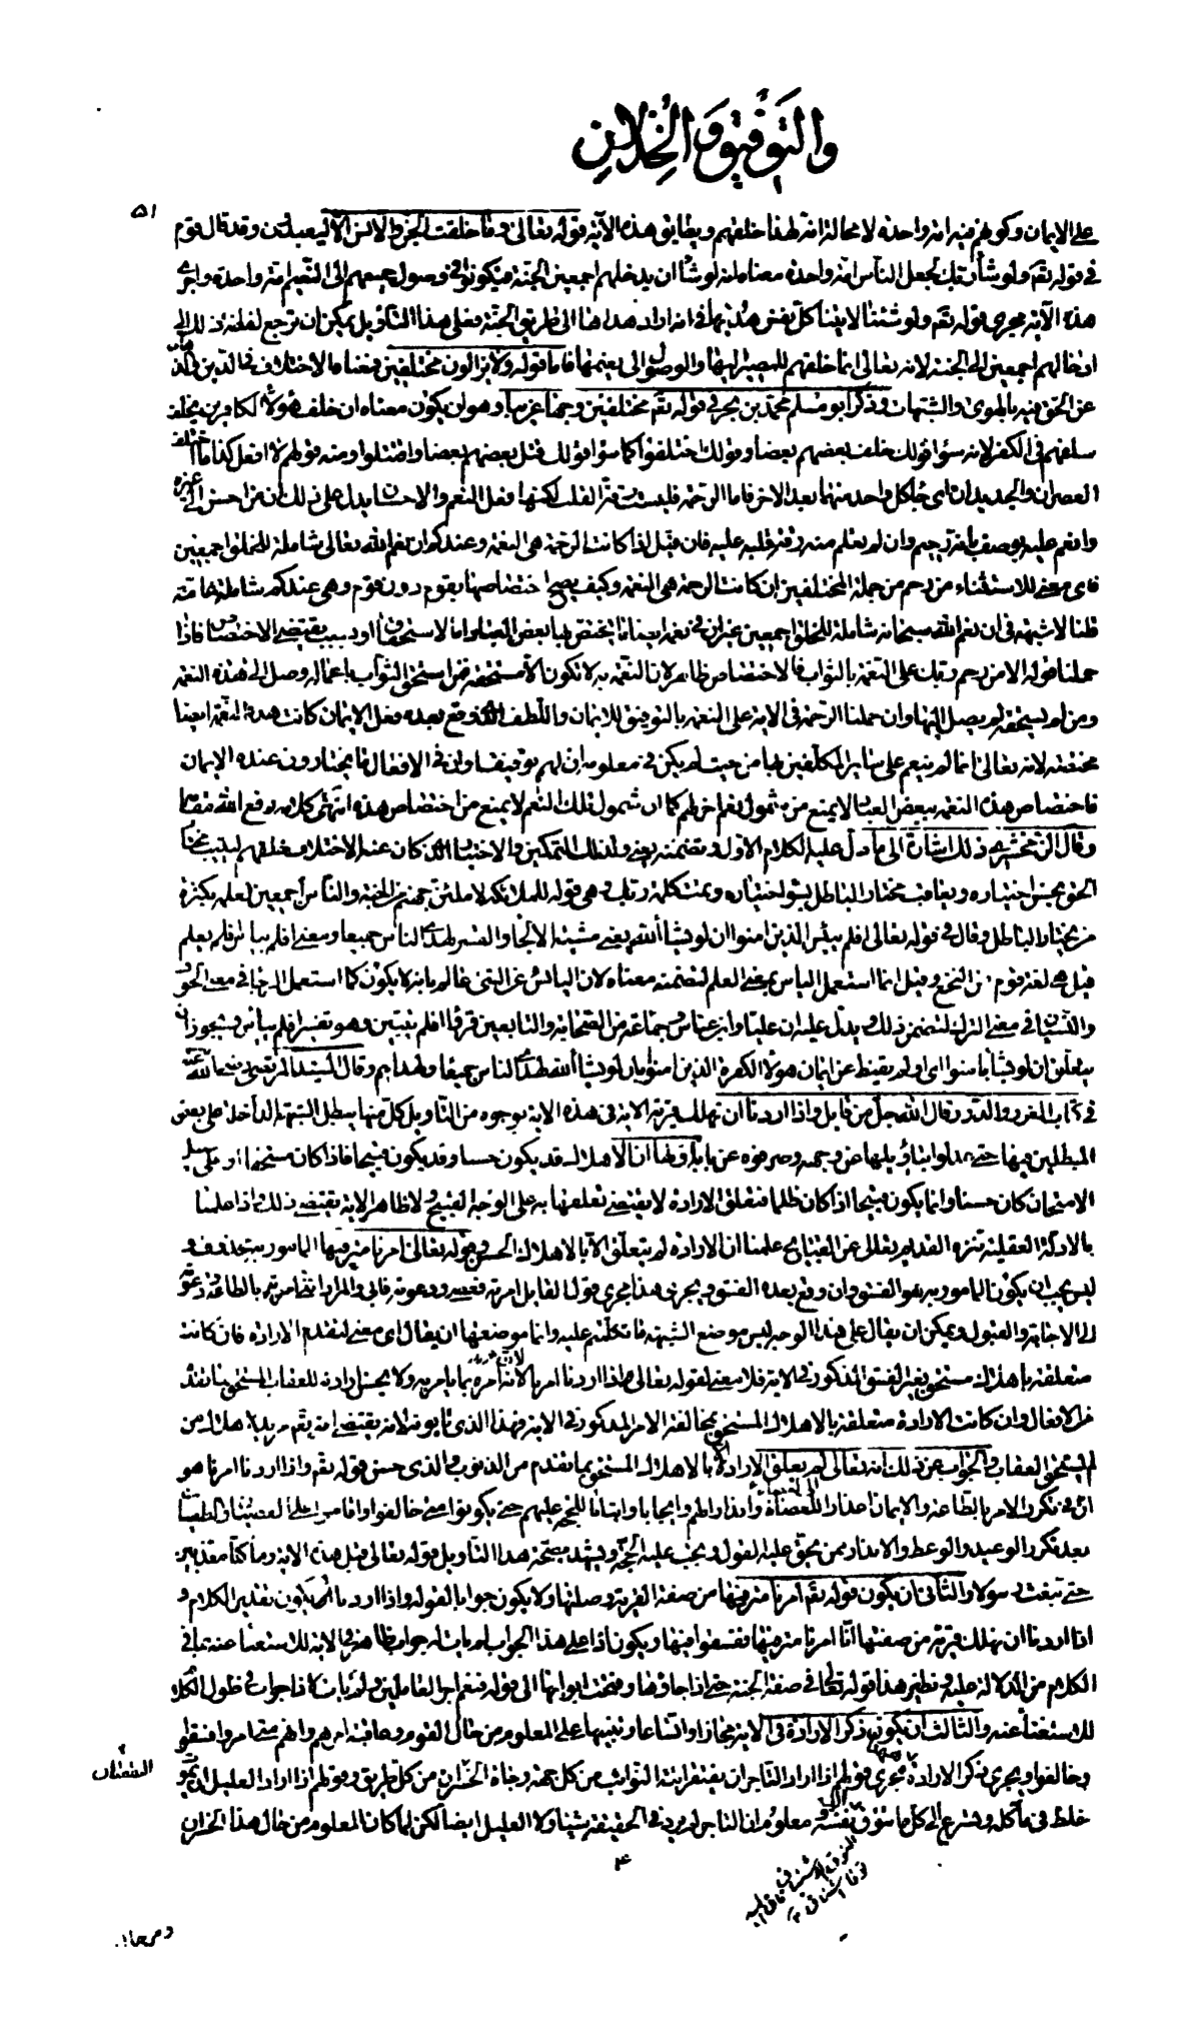 والتوفيق والخذلان
٥١
على الايمان وكونهم فيه امة واحدة لا محالة انه لهذا خلقهم ويطابق هذه الآية قوله تعالى وما خلقت الجن والانس الا ليعبدون وقد قال قوم
في قوله تعم ولو شاء ربك لجعل الناس امة واحدة معناه انه لو شاء ان يدخلهم اجمعين الجنة فيكونوا في وصول جميعهم الى النعيم امة واحدة واجرى
هذه الآية مجرى قوله تعم ولو شئنا لاتينا كل نفس هديها في انه اراد هداها الى طريق الجنة فعلى هذا التأويل يمكن ان ترجع لفظة ذلك الى
ادخالهم اجمعين الى الجنة لانه تعالى انما خلقهم للمصير اليها والوصول الى نعيمها فاما قوله ولا يزالون مختلفين فمعناه الاختلاف في الدين والذهاب
عن الحق فيه بالهوى والشبهات وذكر ابو مسلم محمد بن بحر في قوله تعم مختلفين وجها غريبا وهو ان يكون معناه ان خلف هؤلاء الكافرين يخلف
سلفهم في الكفر لانه سواء قولك خلف بعضهم بعضا وقولك اختلفوا كما سواء قولك قتل بعضهم بعضا واقتتلوا ومنه قولهم لا افعل كذا ما اختلف
العصران والجديدان اى جاء كل واحد منهما بعد الاخر فاما الرحمة فليست رقة القلب لكنها فعل النعم والاحسان يدل على ذلك ان من احسن الى غيره
وانعم عليه يوصف بانه رحيم وان لم يعلم منه رقة قلبه عليه فان قيل اذا كانت الرحمة هي النعمة وعندكم ان نعم الله تعالى شاملة للخلق اجمعين
فاى معنى للاستثناء من رحم من جملة المختلفين ان كانت الرحمة هي النعمة وكيف يصح اختصاصها بقوم دون قوم وهي عندكم شاملة عامة
قلنا لا شبهة في ان نعم الله سبحانه شاملة للخلق اجمعين غير ان في نعمه ايضا ما يختص بها بعض العباد اما لاستحقاق او بسبب يقتضى الاختصاص فاذا
حملنا قوله الا من رحم ربك على النعمة بالثواب فالاختصاص ظاهر لان النعمة به لا تكون الا مستحقة فمن استحق الثواب باعماله وصل الى هذه النعمة
ومن لم يستحقه لم يصل اليها وان حملنا الرحمة في الاية على النعمة بالتوفيق للايمان واللطف الذى وقع بعده فعل الايمان كانت هذه النعمة ايضا
مختصة لانه تعالى انما لم ينعم على سائر المكلفين بها من حيث لم يكن في معلومه ان لهم توفيقا وان في الافعال ما يختارون عنده الايمان
فاختصاص هذه النعمة ببعض العباد لا يمنع من شمول نعم اخر لهم كما ان شمول تلك النعم لا يمنع من اختصاص هذه انتهى كلامه رفع الله مقامه
وقال الزمخشرى ذلك اشارة الى ما دل عليه الكلام الاول وتضمنه يعنى ولذلك التمكين والاختيار الذى كان عنه الاختلاف خلقهم ليثيب مختار
الحق بحسن اختياره ويعاقب مختار الباطل بسوء اختياره وتمت كلمة ربك وهي قوله للملائكة لاملئن جهنم من الجنة والناس اجمعين لعلمه بكثرة
من يختار الباطل وقال في قوله تعالى افلم ييأس الذين امنوا ان لو يشاء الله يعنى مشية الالجاء والقسر لهدى الناس جميعا ومعنى افلم ييأس افلم يعلم
قيل هي لغة قوم من النخع وقيل انما استعمل اليأس بمعنى العلم لتضمنه معناه لان اليائس عن الشئ عالم بانه لا يكون كما استعمل الرجاء في معنى الخوف
والنسيان في معنى الترك لتضمن ذلك ويدل عليه ان عليا وابن عباس وجماعة من الصحابة والتابعين قرؤا افلم يتبين وهو تفسير افلم ييأس ويجوز ان
يتعلق ان لو يشاء بامنوا اى اولم يقنط عن ايمان هؤلاء الكفرة الذين امنوا بان لو يشاء الله لهدى الناس جميعا ولهداهم وقال السيد المرتضى رضي الله عنه
في كتاب الغرر والدرر قال الله جل من قائل واذا اردنا ان نهلك قرية الاية في هذه الاية وجوه من التأويل كل منها يبطل الشبهة الداخلة على بعض
المبطلين فيها حتى عدلوا بتأويلها عن وجهه وصرفوه عن بابه اولها ان الاهلاك قد يكون حسنا وقد يكون قبيحا فاذا كان مستحقا او على سبيل
الامتحان كان حسنا وانما يكون قبيحا اذا كان ظلما فتعلق الارادة لا يقتضى تعلقها به على الوجه القبيح ولا ظاهر الاية يقتضى ذلك واذا علمنا
بالادلة العقلية تنزه القديم تعالى عن القبائح علمنا ان الارادة لم يتعلق الا بالاهلاك الحسن وقوله تعالى امرنا مترفيها المامور به محذوف و
ليس يجب ان يكون المامور به هو الفسق وان وقع بعده الفسق ويجرى هذا مجرى قول القائل امرته فعصى ودعوته فابى والمراد اننى امرته بالطاعة ودعوته
الى الاجابة والقبول ويمكن ان يقال على هذا الوجه ليس موضع الشبهة ما تكلتم عليه وانما موضعها ان يقال اى معنى لتقدم الارادة فان كانت
متعلقة باهلاك مستحق بغير الفسق المذكور في الاية فلا معنى لقوله تعالى اذا اردنا امرنا لان امره بما يامر به ولا يحسن ارادته للعقاب المستحق بما تقدم
من الافعال وان كانت الارادة متعلقة بالاهلاك المستحق بمخالفة الامر المذكور في الاية فهذا الذى تأبونه لانه يقتضى انه تعم مريد لاهلاك من
لم يستحق العقاب والجواب عن ذلك انه تعالى لم يعلق الارادة الا بالاهلاك المستحق بما تقدم من الذنوب والذى حسن قوله تعم واذا اردنا امرنا هو
ان في تكرر الامر بالطاعة والايمان اعذارا الى العصاة وانذارا لهم وايجابا واثباتا للحجة عليهم حتى يكونوا متى خالفوا واقاموا على العصيان والطغيان
بعد تكرر الوعيد والوعظ والانذار ممن يحق عليه القول ويجب عليه الحجة ويشهد بصحة هذا التأويل قوله تعالى قبل هذه الاية وما كنا معذبين
حتى نبعث رسولا والثانى ان يكون قوله تعم امرنا مترفيها من صفة القرية وصلتها ولا يكون جوابا لقوله واذا اردنا ويكون تقدير الكلام و
اذا اردنا ان نهلك قرية من صفتها انا امرنا مترفيها ففسقوا فيها ويكون اذا على هذا الجواب لم يات له جواب ظاهر في الاية للاستغناء عنه بما في
الكلام من الدلالة عليه ونظير هذا قوله تعالى في صفة الجنة حتى اذا جاؤها وفتحت ابوابها الى قوله فنعم اجر العاملين ولم يأت لاذا جواب في طول الكلام
للاستغناء عنه والثالث ان يكون ذكر الارادة في الاية مجازا واتساعا وتنبيها على المعلوم من حال القوم وعاقبة امرهم وانهم متى امروا فسقوا
وخالفوا ويجرى ذكر الارادة مجرى قولهم اذا اراد التاجر ان يفتقر اتته النوائب من كل جهة وجاءه الخسران من كل طريق وقولهم اذا اراد العليل ان يموت
خلط في مأكله وتسرع الى كل ما تتوق نفسه ومعلوم ان التاجر لم يرد في الحقيقة شيئا ولا العليل ايضا لكن لما كان المعلوم من حال هذا الخسران
النقصان